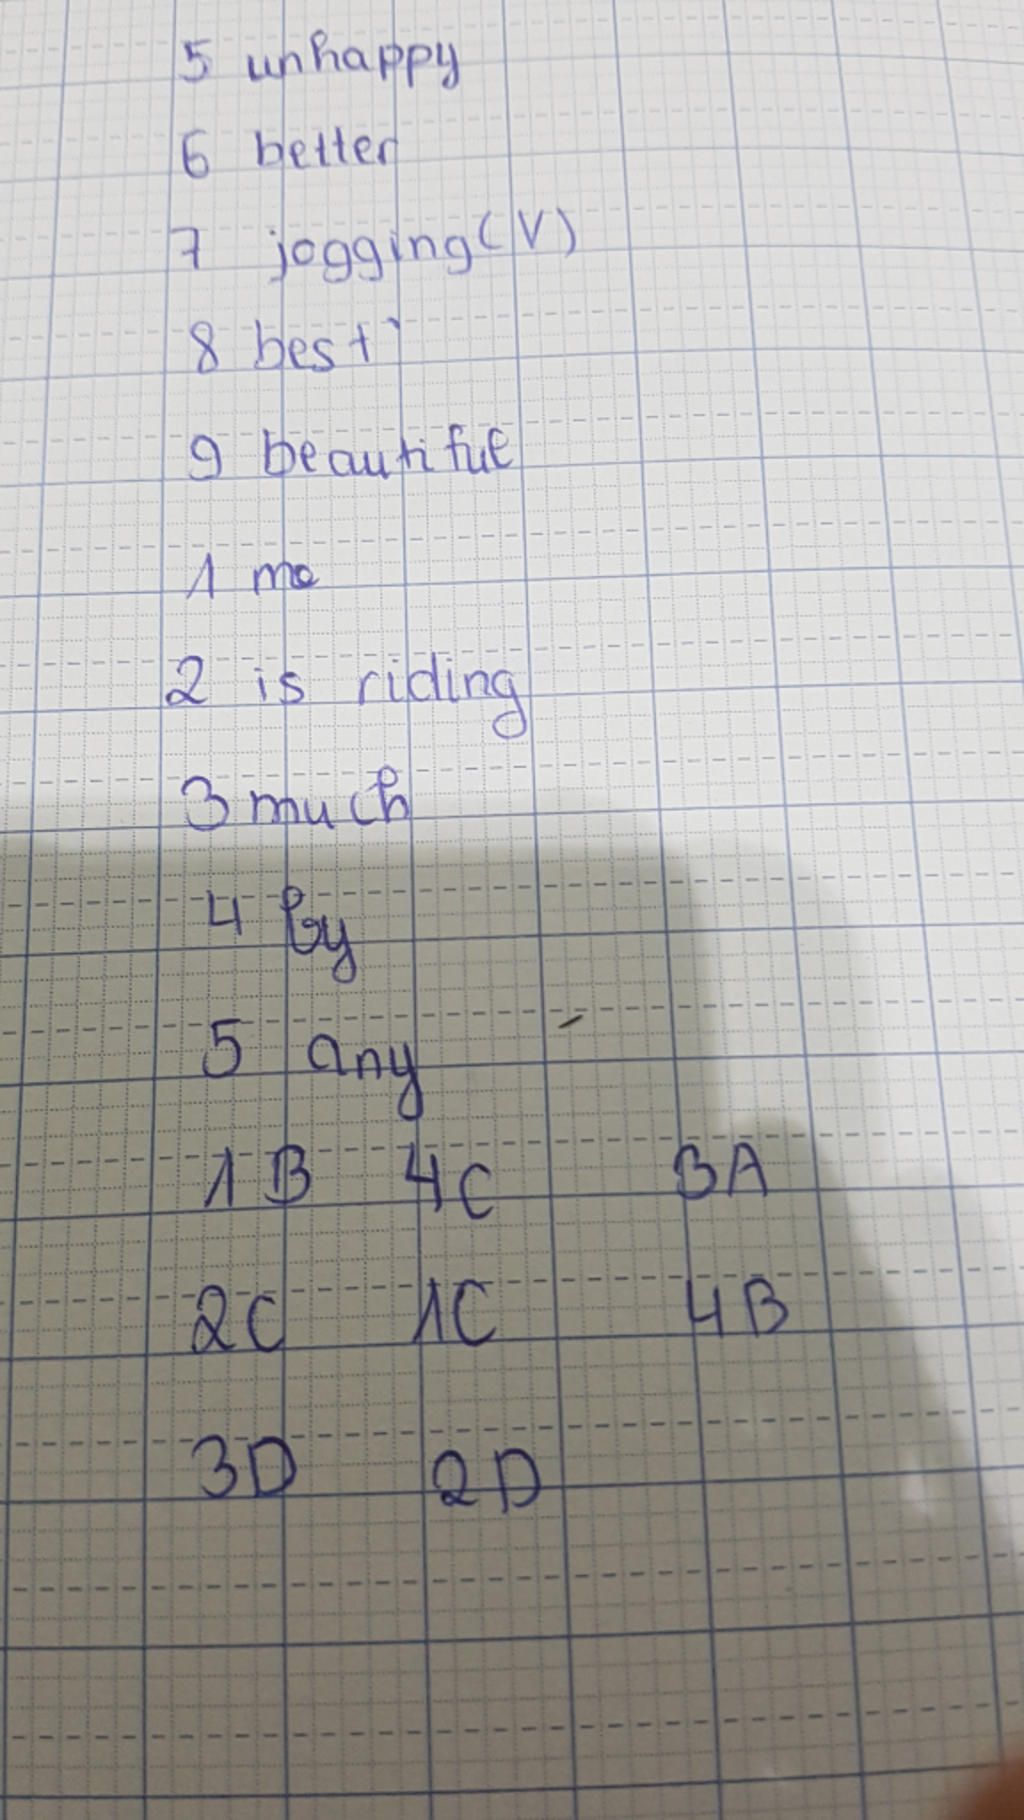 5 unhappy
6 better
7 jogging (V)
8 best
9 beautiful
1 me
2 is riding
3 much
4 by
5 any
1 B 4C 3A
2C 1C 4B
3D 2D